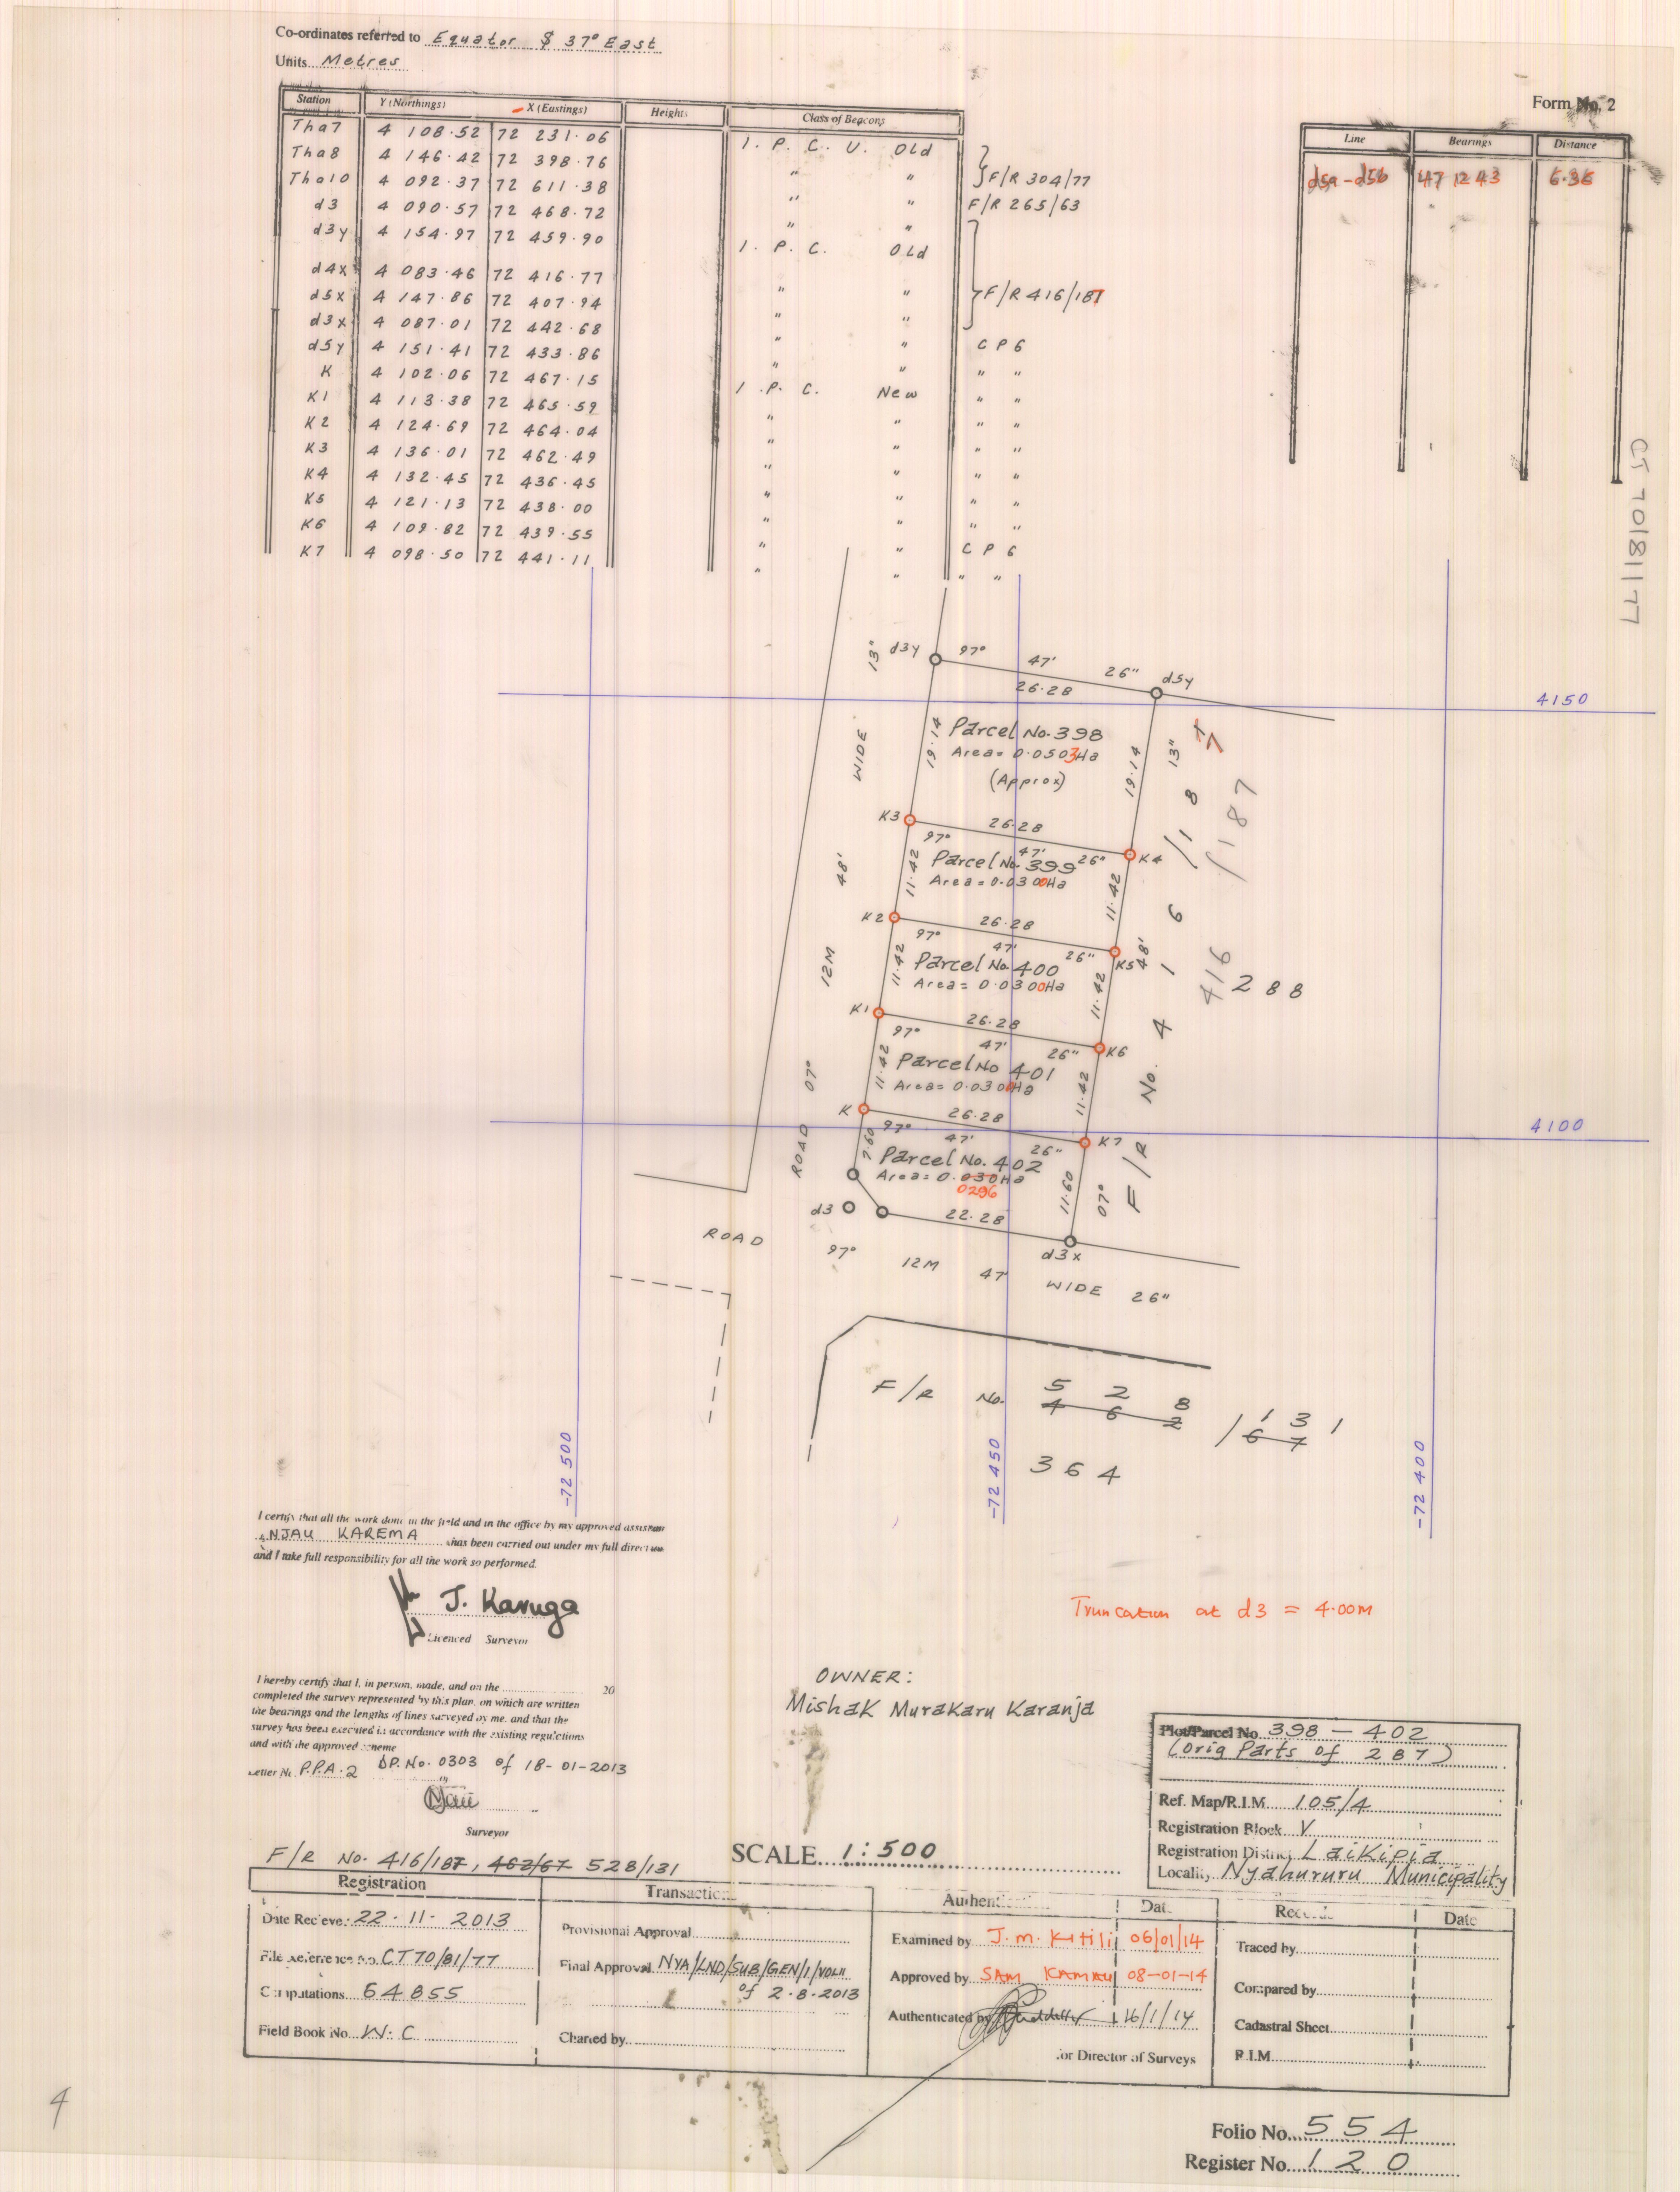 Co-ordinates referred to Equator $ 37° East
Units Metres
Form No. 2
Station Y (Northings) X (Eastings) Heights Class of Beacons
Tha7 4 108.52 72 231.06 I. P. C. U. Old
Tha8 4 146.42 72 398.76 " " F/R 304/77
Tha10 4 092.37 72 611.38 " " F/R 265/63
d3 4 090.57 72 468.72 " "
d3y 4 154.97 72 459.90 I. P. C. Old
d4x 4 083.46 72 416.77 " " F/R 416/187
d5x 4 147.86 72 407.94 " "
d3x 4 087.01 72 442.68 " " C P 6
d5y 4 151.41 72 433.86 " " " "
K 4 102.06 72 467.15 I. P. C. New " "
K1 4 113.38 72 465.59 " " " "
K2 4 124.69 72 464.04 " " " "
K3 4 136.01 72 462.49 " " " "
K4 4 132.45 72 436.45 " " " "
K5 4 121.13 72 438.00 " " " "
K6 4 109.82 72 439.55 " " C P 6
K7 4 098.50 72 441.11 " " " "
Line Bearings Distance
d5a-d5b 47 12 43 6.36
CT 70/81/77
d3y 97° 47' 26" d5y
26.28
4150
13"
WIDE
48'
12M
07°
ROAD
19.14
Parcel No. 398
Area= 0.0503Ha
(Approx)
19.14
13"
K3 26.28
97° 47' 26" K4
11.42
Parcel No. 399
Area= 0.0300Ha
11.42
K2 26.28
97° 47' 26" K5
48'
11.42
Parcel No. 400
Area= 0.0300Ha
11.42
K1 26.28
97° 47' 26" K6
11.42
Parcel No 401
Area= 0.0300Ha
11.42
K 26.28
97° 47' 26" K7
4100
7.60
Parcel No. 402
Area= 0.030Ha
0296
11.60
07°
F/R No. 416/187
7
416/187
288
d3
22.28
d3x
ROAD
97° 12M 47' WIDE 26"
F/R No. 528/131
462/67
364
-72 500
-72 450
-72 400
I certify that all the work done in the field and in the office by my approved assistant
NJAU KAREMA has been carried out under my full direction
and I take full responsibility for all the work so performed.
J. Karuga
Licenced Surveyor
Truncation at d3 = 4.00M
I hereby certify that I, in person, made, and on the 20
completed the survey represented by this plan, on which are written
the bearings and the lengths of lines surveyed by me, and that the
survey has been executed in accordance with the existing regulations
and with the approved scheme
Letter No. P.P.A.2 DP. No. 0303 of 18-01-2013
Surveyor
OWNER:
Mishak Murakaru Karanja
Plot/Parcel No. 398 - 402
(Orig Parts of 287)
Ref. Map/R.I.M. 105/4
Registration Block V
Registration District Laikipia
Locality Nyahururu Municipality
F/R No. 416/187, 462/67 528/131
SCALE 1:500
Registration
Date Recieved 22.11.2013
File Reference No. CT70/81/77
Computations 64855
Field Book No. W.C
Transaction
Provisional Approval
Final Approval NYA/LND/SUB/GEN/1/VOLII
of 2.8.2013
Charted by
Authenti Date
Examined by J. M. Kitili 06/01/14
Approved by SAM KAMAU 08-01-14
Authenticated by 16/1/14
for Director of Surveys
Records Date
Traced by
Compared by
Cadastral Sheet
R.I.M.
4
Folio No. 554
Register No. 120